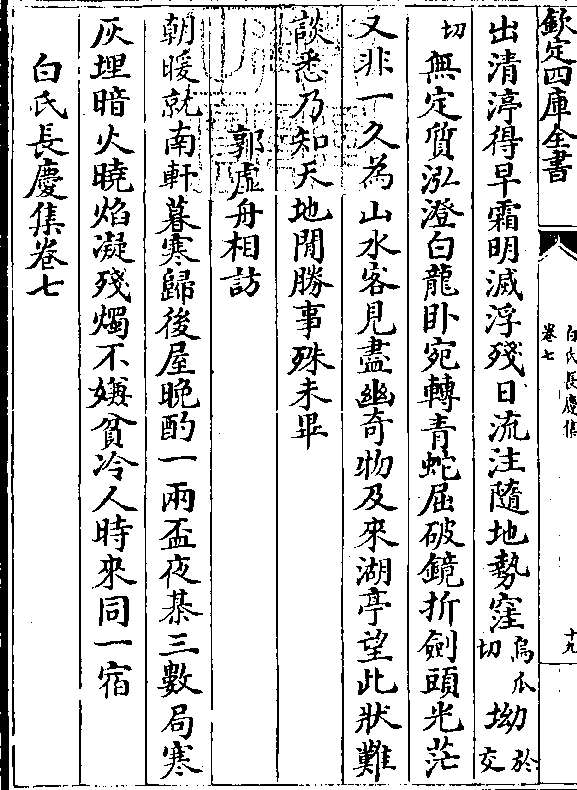 欽定四庫全書
白氏長慶集
卷七
十九
出清渟得早霜明滅浮殘日流注隨地勢窪烏瓜切坳於交
切無定質泓澄白龍卧宛轉青蛇屈破鏡折劍頭光茫
又非一久為山水客見盡幽奇物及來湖亭望此狀難
談悉乃知天地閒勝事殊未畢
郭虛舟相訪
朝暖就南軒暮寒歸後屋晚酌一兩盃夜棊三數局寒
灰埋暗火曉焰凝殘燭不嫌貧冷人時來同一宿
白氏長慶集卷七